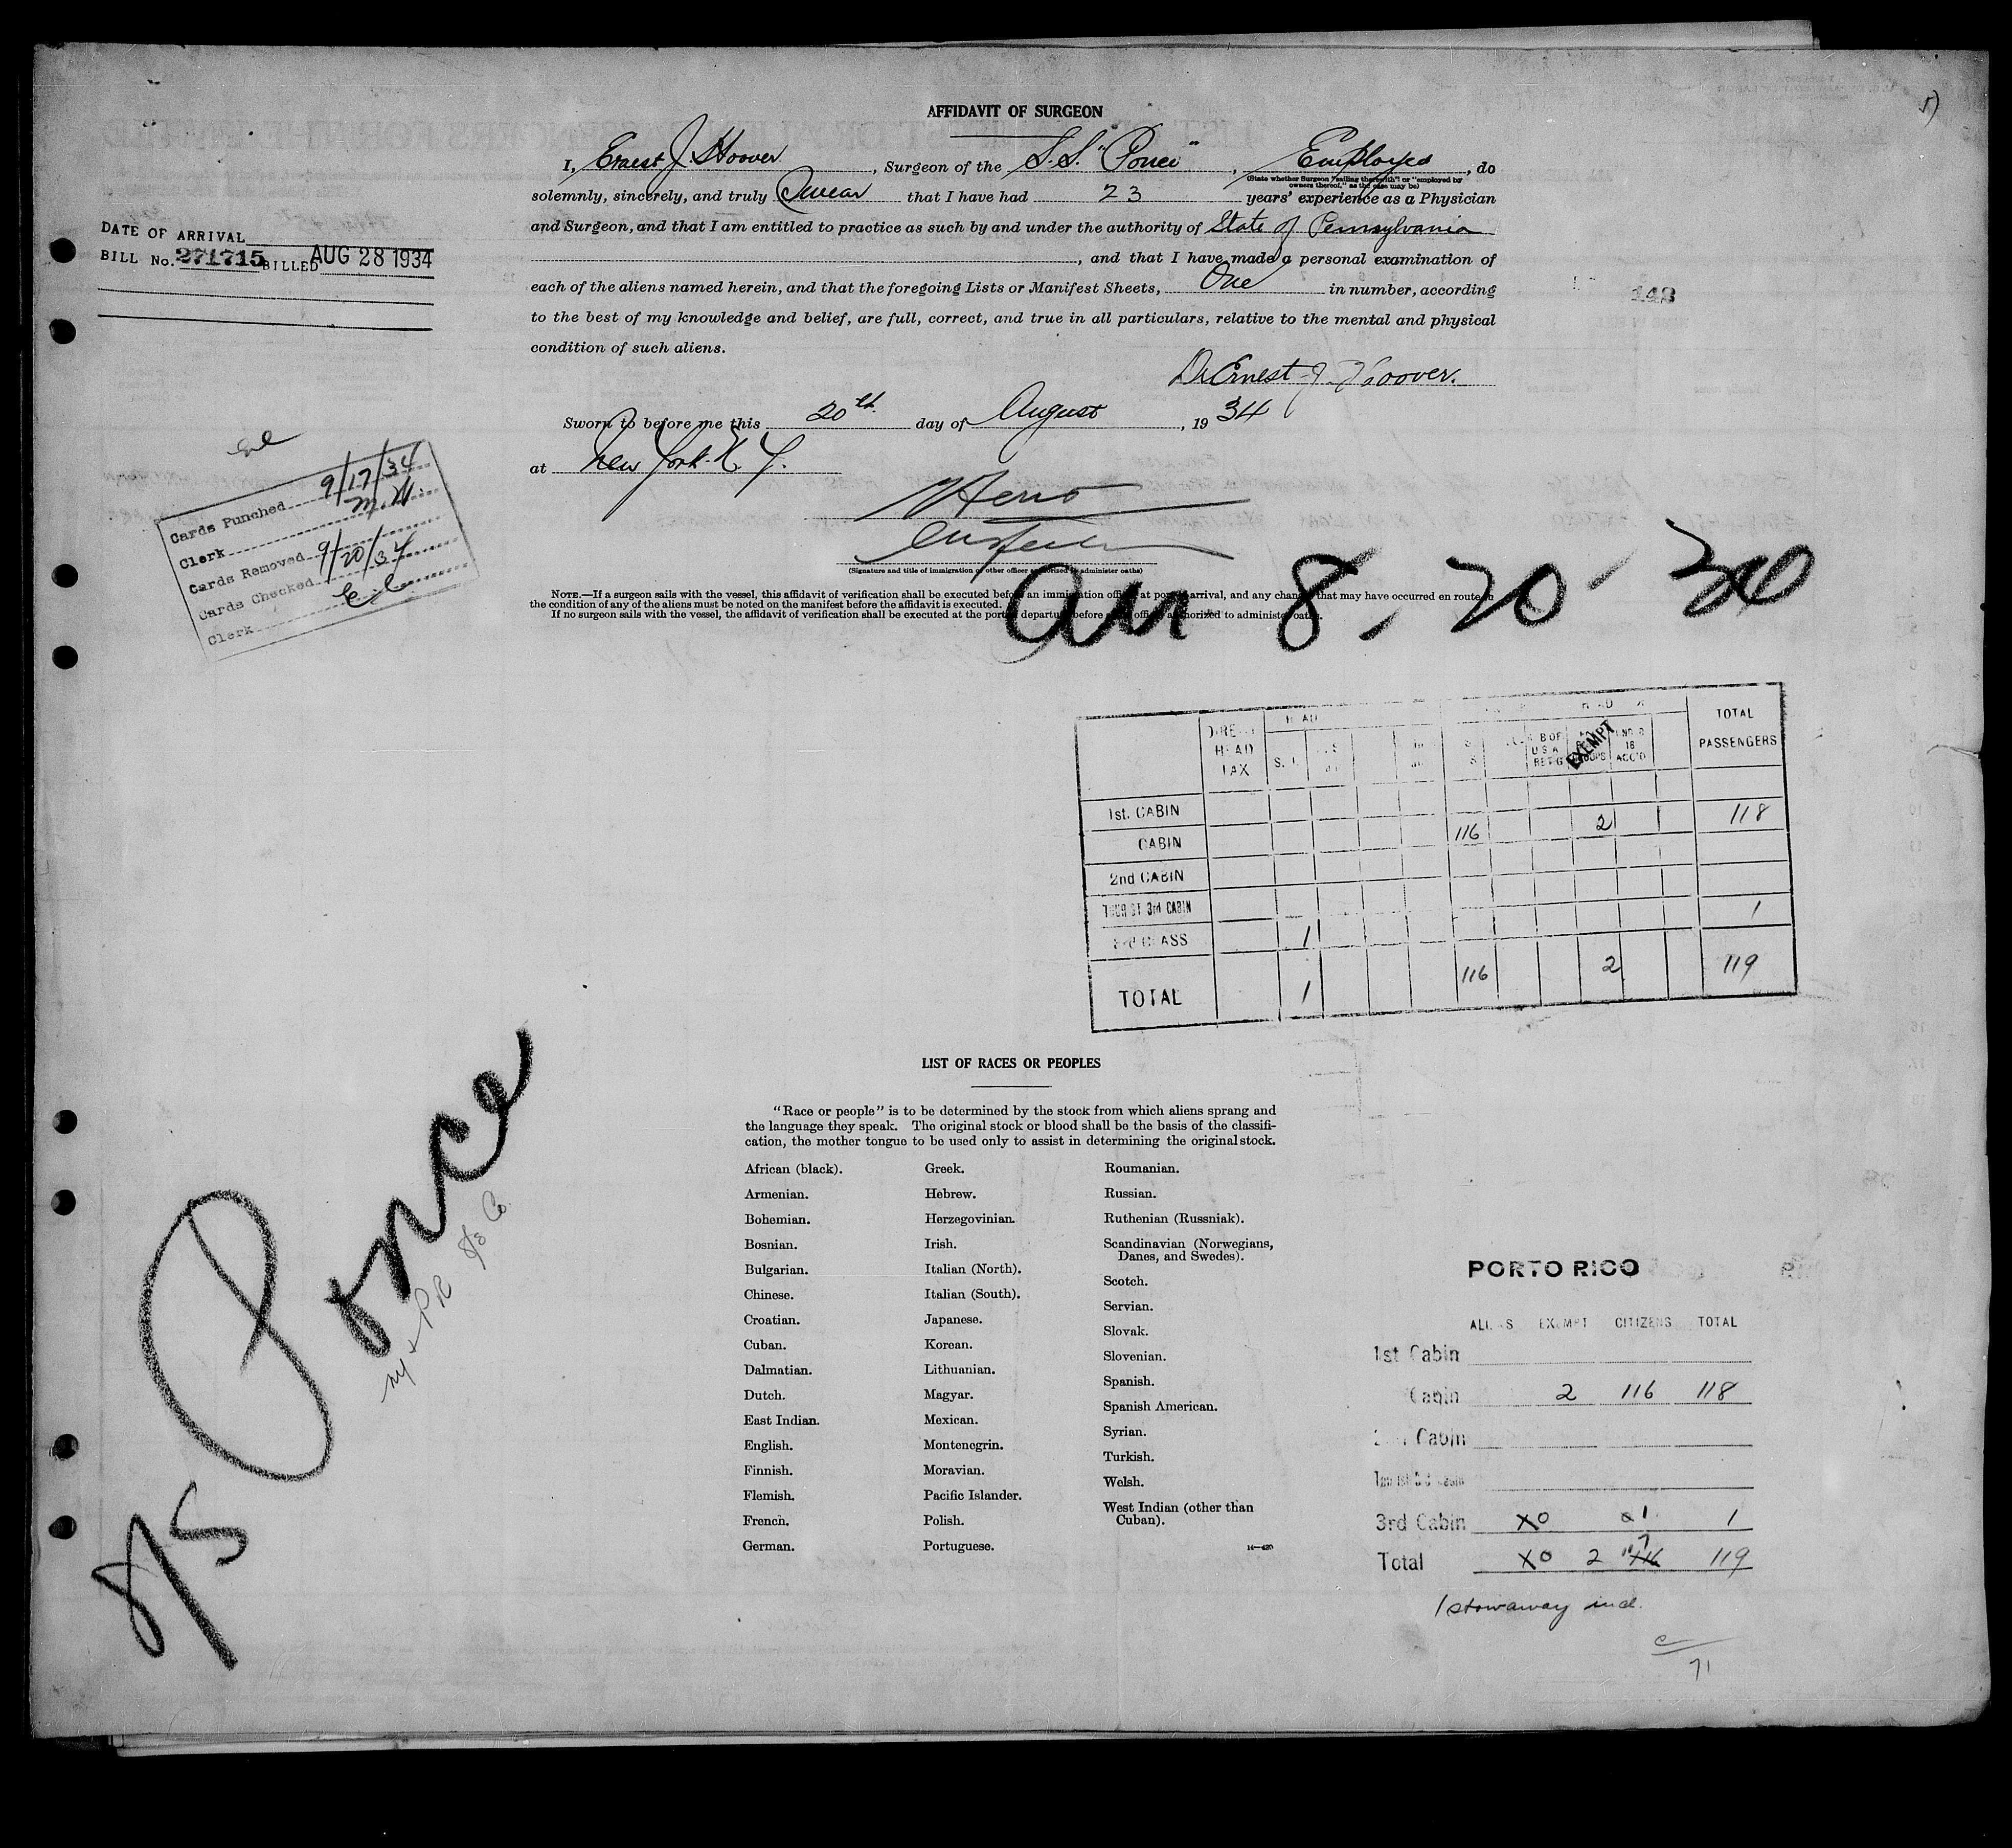 AFFIDAVIT OF SURGEON
I, Ernest J. Hoover, Surgeon of the S.S. "Ponce", Employee, do
(State whether Surgeon "sailing therewith" or "employed by
owners thereof," as the case may be)
solemnly, sincerely, and truly Swear that I have had 23 years' experience as a Physician
and Surgeon, and that I am entitled to practice as such by and under the authority of State of Pennsylvania
, and that I have made a personal examination of
each of the aliens named herein, and that the foregoing Lists or Manifest Sheets, One in number, according
to the best of my knowledge and belief, are full, correct, and true in all particulars, relative to the mental and physical
condition of such aliens.
Dr Ernest J. Hoover.
Sworn to before me this 20th. day of August, 1934
at New York. N.Y.
(Signature and title of immigration or other officer authorized to administer oaths)
NOTE.—If a surgeon sails with the vessel, this affidavit of verification shall be executed before an immigration officer at port of arrival, and any change that may have occurred en route in
the condition of any of the aliens must be noted on the manifest before the affidavit is executed.
If no surgeon sails with the vessel, the affidavit of verification shall be executed at the port of departure before an officer authorized to administer oaths.
DATE OF ARRIVAL
BILL No. 271715 BILLED AUG 28 1934
148
Cards Punched 9/17/34
Clerk M.H.
Cards Removed
Cards Checked 9/20/34
Clerk E.C.
8-20-34
DIRECT HEAD TAX
EXEMPT
TOTAL PASSENGERS
1st. CABIN
CABIN 116 2 118
2nd CABIN
TOURIST 3rd CABIN
3rd CLASS 1 1
TOTAL 1 116 2 119
LIST OF RACES OR PEOPLES
"Race or people" is to be determined by the stock from which aliens sprang and
the language they speak. The original stock or blood shall be the basis of the classifi-
cation, the mother tongue to be used only to assist in determining the original stock.
African (black).
Armenian.
Bohemian.
Bosnian.
Bulgarian.
Chinese.
Croatian.
Cuban.
Dalmatian.
Dutch.
East Indian.
English.
Finnish.
Flemish.
French.
German.
Greek.
Hebrew.
Herzegovinian.
Irish.
Italian (North).
Italian (South).
Japanese.
Korean.
Lithuanian.
Magyar.
Mexican.
Montenegrin.
Moravian.
Pacific Islander.
Polish.
Portuguese.
Roumanian.
Russian.
Ruthenian (Russniak).
Scandinavian (Norwegians,
Danes, and Swedes).
Scotch.
Servian.
Slovak.
Slovenian.
Spanish.
Spanish American.
Syrian.
Turkish.
Welsh.
West Indian (other than
Cuban).
S/S Ponce
NY & PR SS Co.
PORTO RICO
ALIENS EXEMPT CITIZENS TOTAL
1st Cabin
Cabin 2 116 118
2nd Cabin
3rd Cabin 0 1 1
Total 0 2 117 119
1 stowaway incl.
71